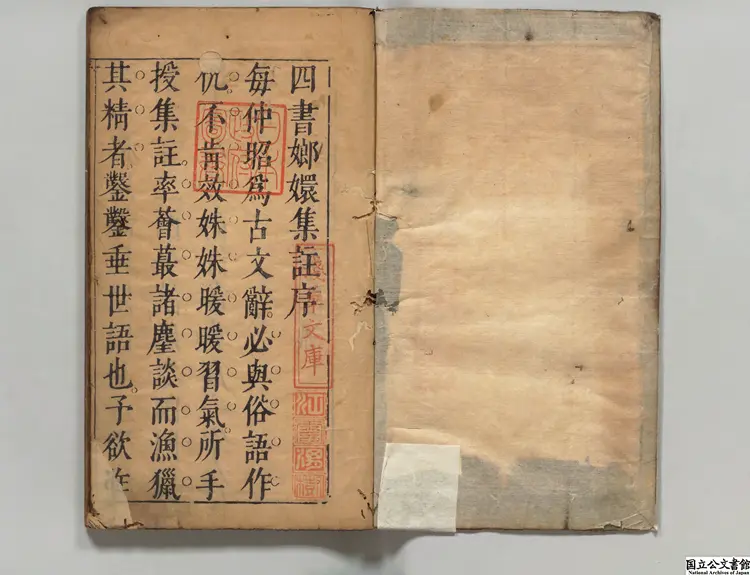 四書嫏嬛集註序
每仲昭爲古文辭必與俗語作
仇不肯效姝姝暖暖習氣所手
授集註率薈蕞諸麈談而漁獵
其精者鑿鑿垂世語也予欲
文庫
国立公文書館
National Archives of Japan